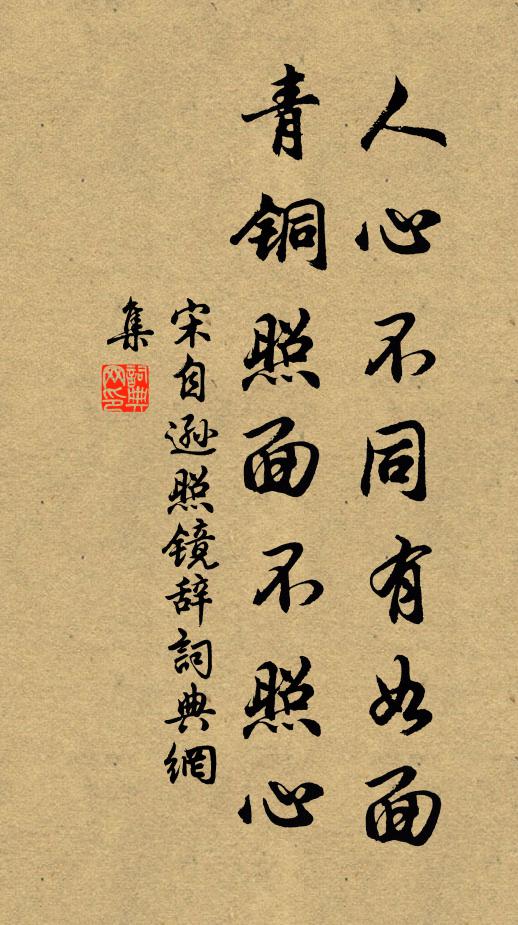 人心不同有如面
青铜照面不照心
宋自逊照镜辞詞典網
集
詞典
网印